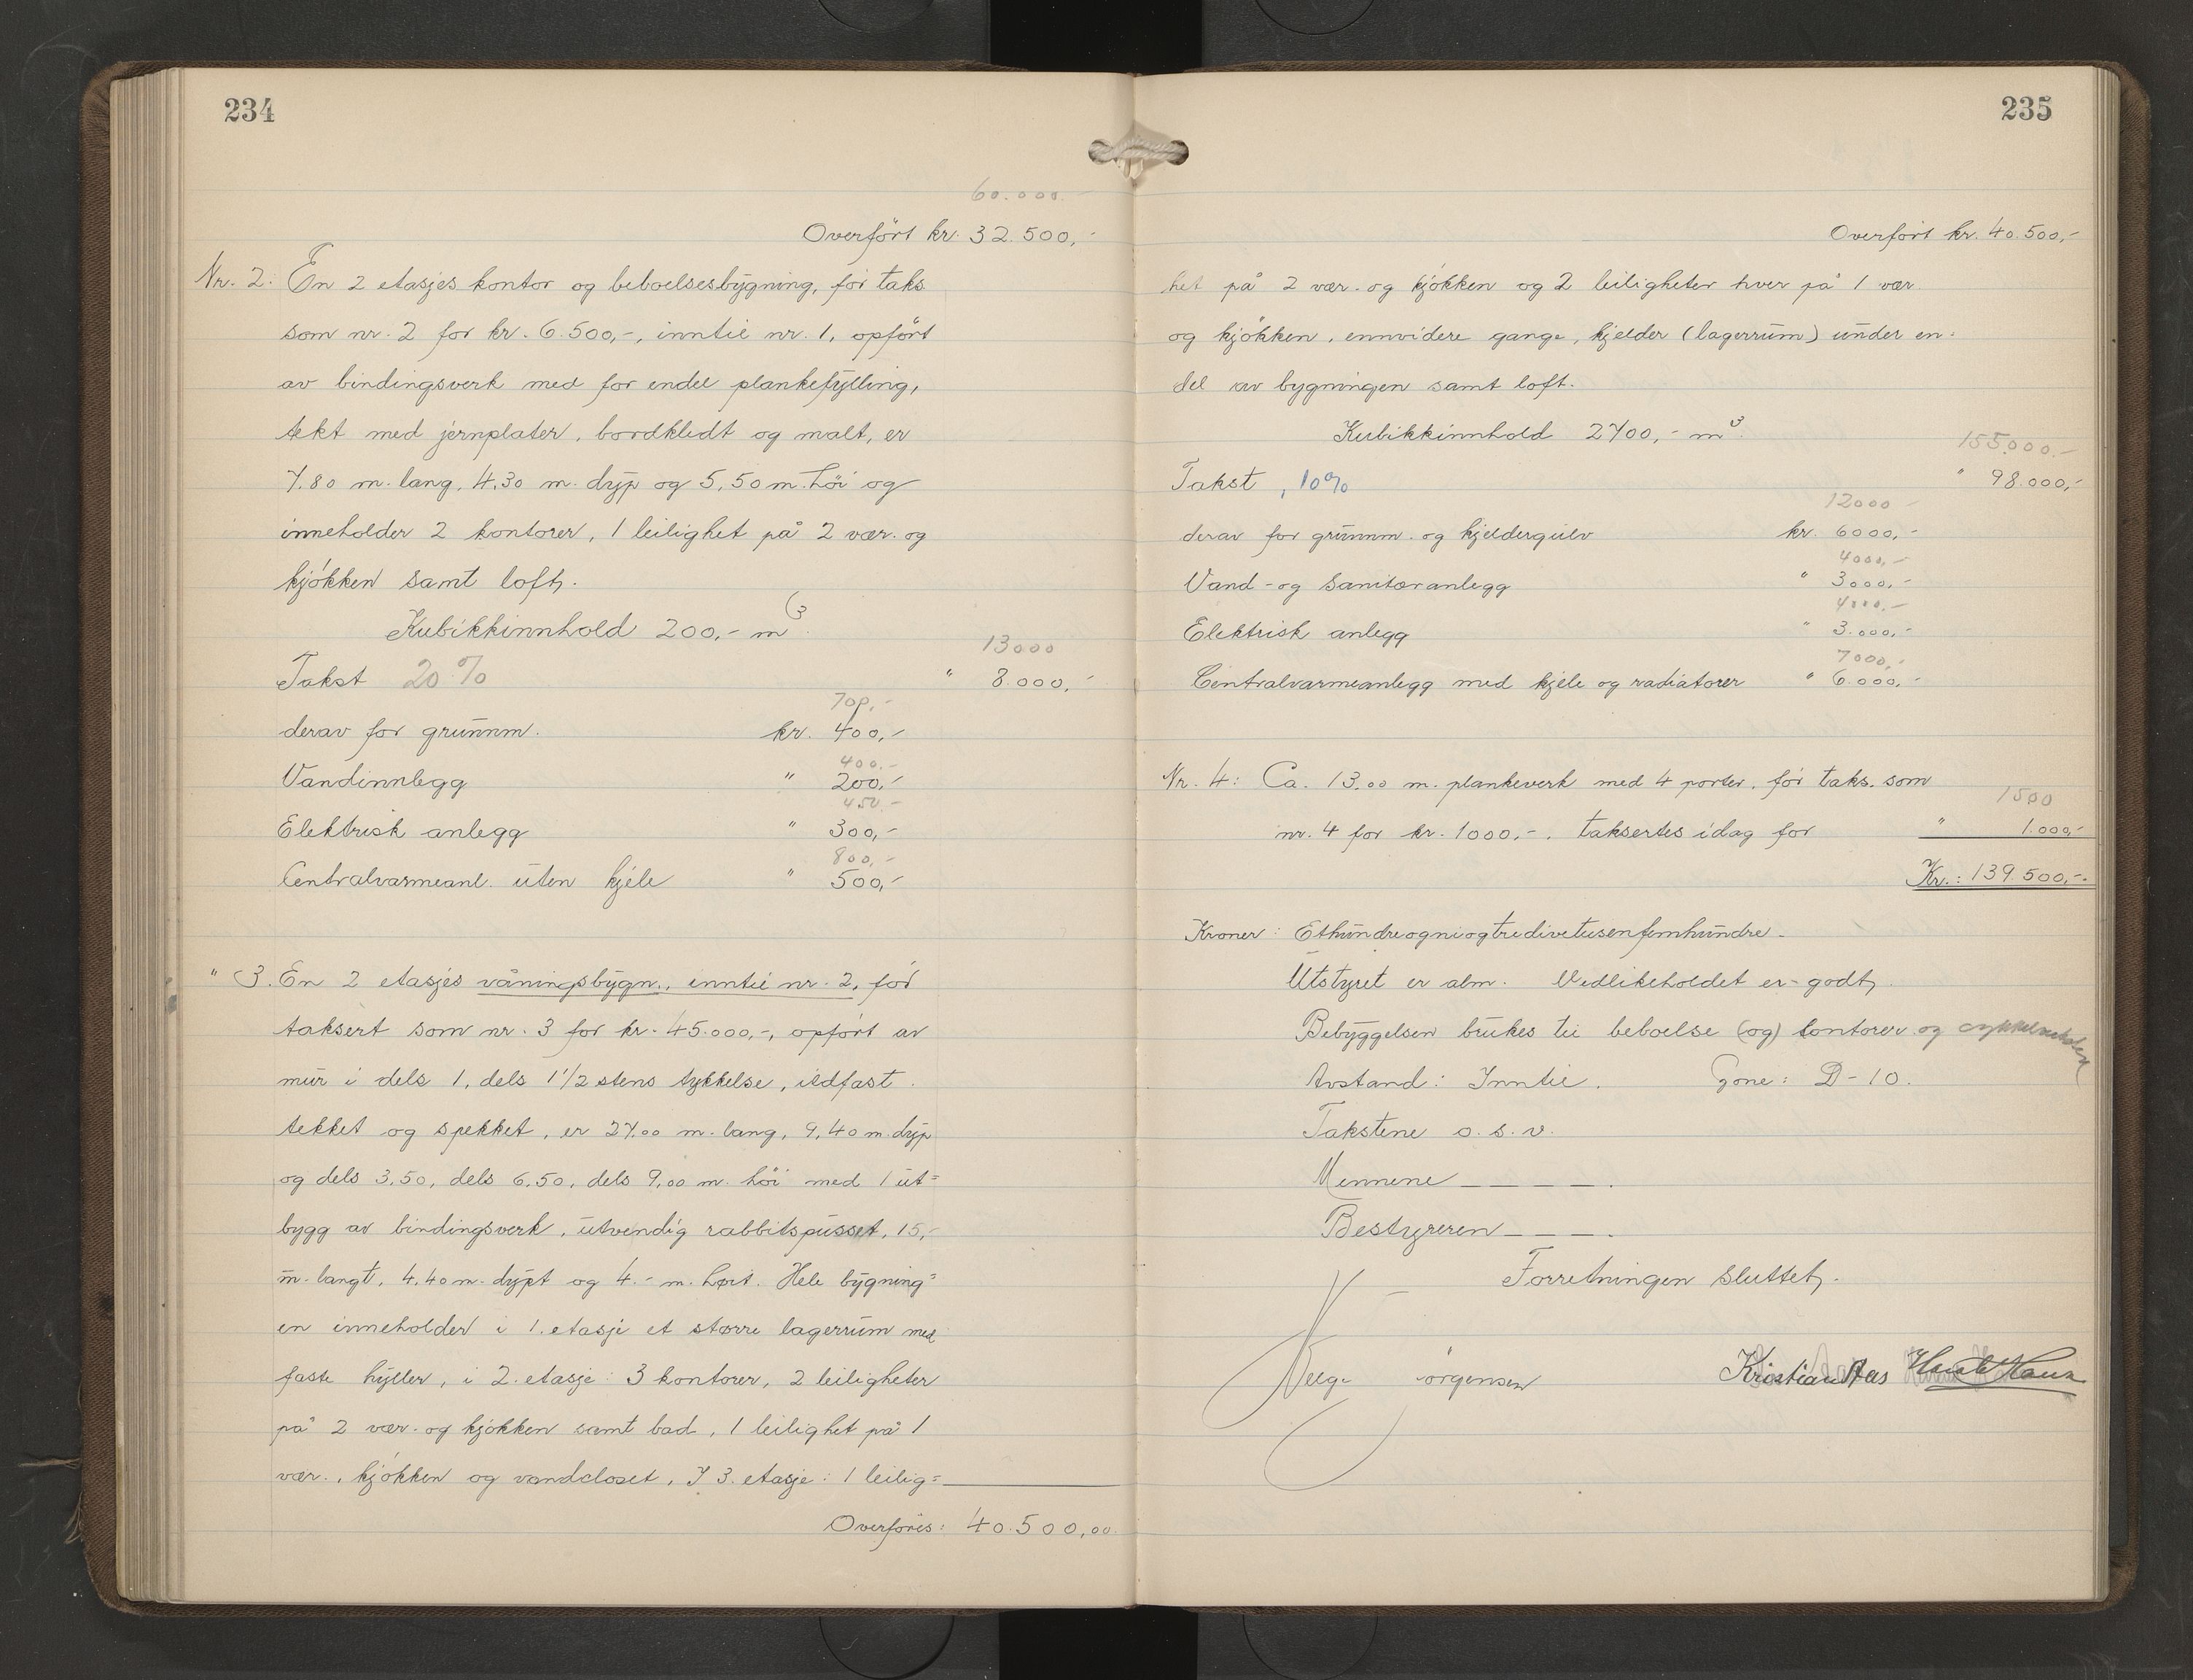 234
60.000.-
Overført kr. 32.500,-
Nr. 2: En 2 etasjes kontor og beboelsesbygning, før taks.
som nr. 2 for kr. 6.500,-, inntil nr. 1, opført
av bindingsverk med for endel plankefylling,
tekt med jernplater, bordkledt og malt, er
7.80 m. lang, 4,30 m. dyp og 5,50 m. høi og
inneholder 2 kontorer, 1 leilighet på 2 vær. og
kjøkken samt loft.
Kubikkinnhold 200,- m3.
13000
Takst 20% " 8.000,-
700,-
derav for grunnm. kr. 400,-
400.-
Vandinnlegg " 200,-
450.-
Elektrisk anlegg " 300,-
800,-
Centralvarmeanl. uten kjele " 500,-
" 3. En 2 etasjes våningsbygn., inntil nr. 2, før
taksert som nr. 3 for kr. 45.000,-, opført av
mur i dels 1, dels 1 1/2 stens tykkelse, ildfast
tekket og spekket, er 27.00 m. lang, 9,40 m. dyp
og dels 3,50, dels 6.50, dels 9,00 m. høi med 1 ut=
bygg av bindingsverk, utvendig rabbitspusset, 15,-
m. langt, 4,40 m. dypt og 4.- m. høit. Hele bygning=
en inneholder i 1. etasje et større lagerrum med
faste hyller, i 2. etasje: 3 kontorer, 2 leiligheter
på 2 vær. og kjøkken samt bad, 1 leilighet på 1
vær., kjøkken og vandcloset, I 3. etasje: 1 leilig=
Overføres: 40.500,00
235
Overført kr. 40.500,-
het på 2 vær. og kjøkken og 2 leiligheter hver på 1 vær.
og kjøkken, ennvidere gange, kjelder (lagerrum) under en=
del av bygningen samt loft.
Kubikkinnhold 2700,- m3.
155.000.-
Takst, 10% " 98.000,-
12000 -
derav for grunnm. og kjeldergulv kr. 6000,-
4000,-
Vand- og sanitæranlegg " 3000,-
4000.-
Elektrisk anlegg " 3.000,-
7000,-
Centralvarmeanlegg med kjele og radiatorer " 6.000,-
Nr. 4: Ca. 13.00 m. plankeverk med 4 porter, før taks. som
1500
nr. 4 for kr. 1000,-, taksertes idag for " 1.000,-
Kr.: 139.500,-.
Kroner: Ethundreogniogtredivetusenfemhundre.
Utstyret er alm. Vedlikeholdet er godt,
Bebyggelsen brukes til beboelse (og) kontorer og
Avstand: Inntil. Zone: D-10.
Takstene o.s.v.
Mennene ____.
Bestyreren ___.
Forretningen sluttet.
Helge Jørgensen Kristian Aas